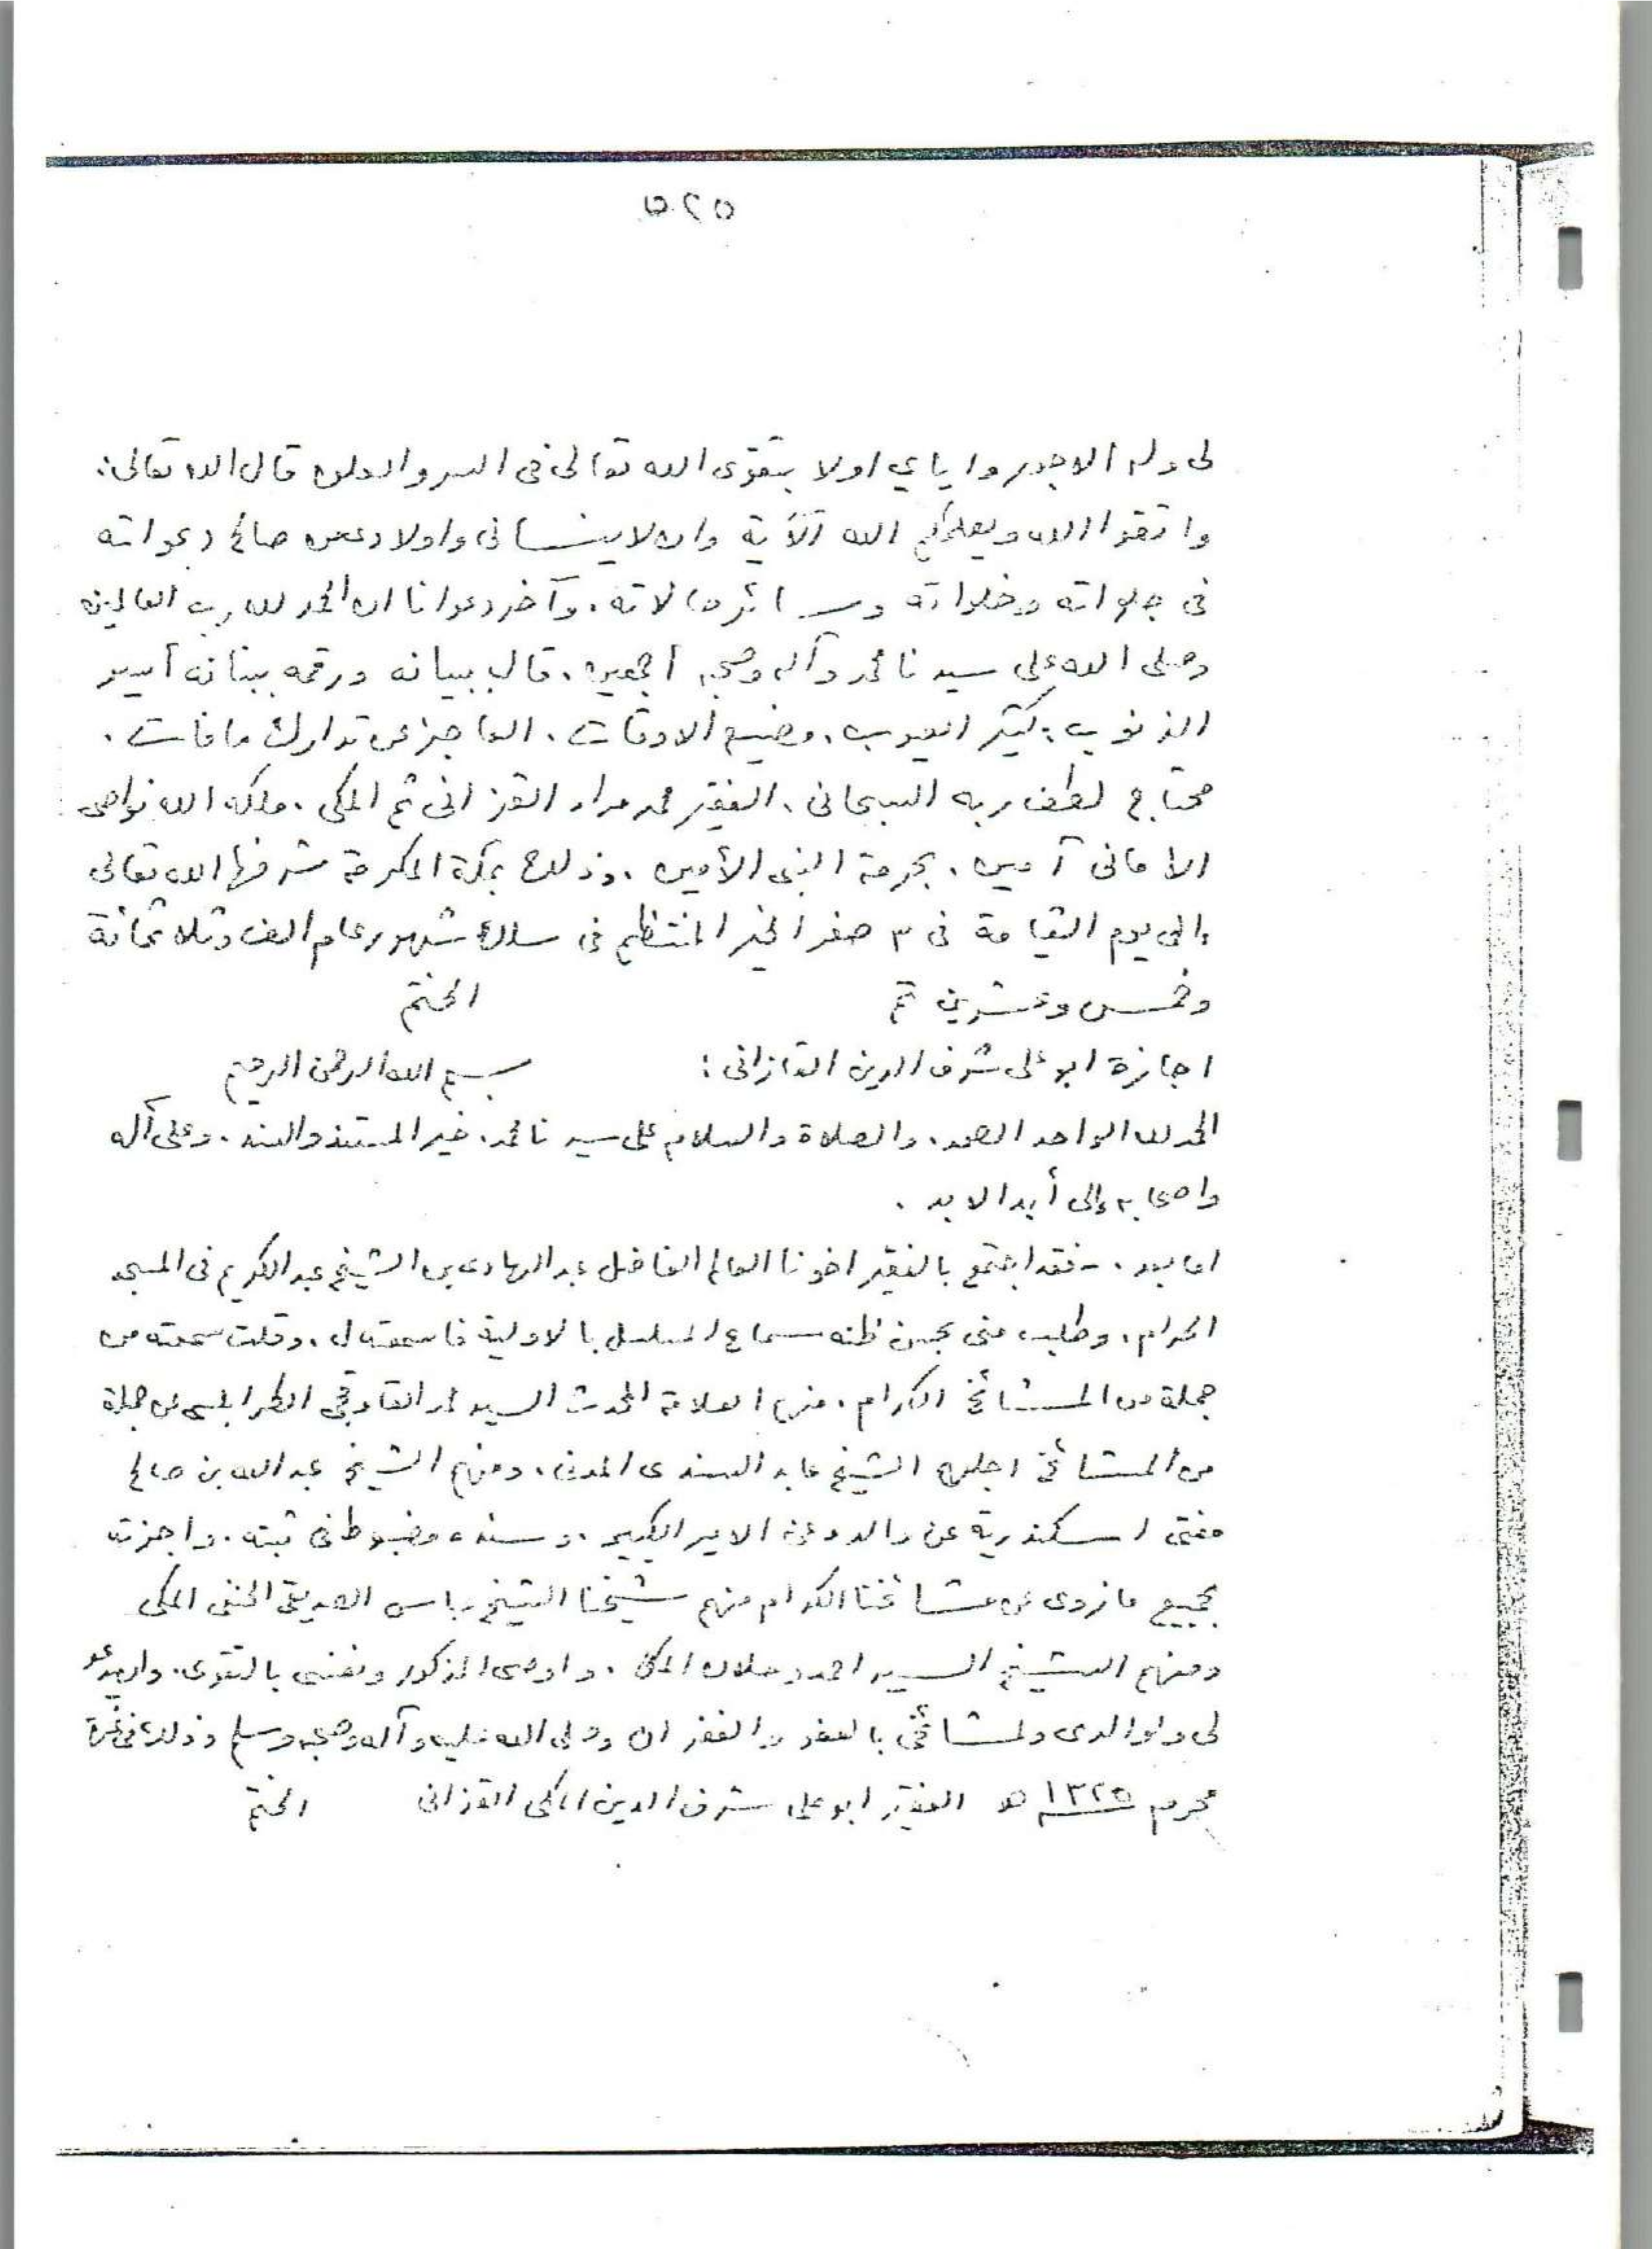 ٥٢٥
لي وله الاجور واياي اولا بتقوى الله تعالى فى السر والعلن قال الله تعالى:
واتقوا الله ويعلمكم الله الآية وان لا ينسانى واولادى من صالح دعواته
فى جلواته وخلواته وسائر حالاته، وآخر دعوانا ان الحمد لله رب العالمين
وصلى الله على سيدنا محمد وآله وصحبه أجمعين، قال ببيانه ورقمه ببنانه أسير
الذنوب، كثير العيوب، مضيع الاوقات، العاجز عن تدارك ما فات،
محتاج لطف ربه السبحانى، الفقير محمد مراد القزانى ثم المكى، ملكه الله نواصى
الامانى آمين، بحرمة النبى الأمين، وذلك بمكة المكرمة شرفها الله تعالى
إلى يوم القيامة فى ٣ صفر الخير المنتظم فى سلك شهور عام الف وثلاثمائة
وخمس وعشرين تم الختم
اجازة ابو على شرف الدين القازانى: بسم الله الرحمن الرحيم
الحمد لله الواحد الصمد، والصلاة والسلام على سيدنا محمد، خير المستند والسند، وعلى آله
واصحابه إلى أبد الابد.
اما بعد، فقد اجتمع بالفقير اخونا العالم الفاضل عبد الهادى بن الشيخ عبد الكريم فى المسجد
الحرام، وطلب منى بحسن ظنه سماع المسلسل بالاولية فاسمعته له، وقلت سمعته من
جملة من المشائخ الكرام، منهم العلامة المحدث السيد محمد القاوقجى الطرابلسى عن جملة
من المشائخ اجلهم الشيخ عابد السندى المدنى، ومنهم الشيخ عبد الله بن صالح
مفتى اسكندرية عن والده عن الامير الكبير، وسنده مضبوط فى ثبته، واجزته
بجميع ما نروى عن مشائخنا الكرام منهم شيخنا الشيخ عباس الصديقى الحنفى المكى
ومنهم الشيخ السيد احمد دحلان المكى، واوصى المذكور ونفسى بالتقوى، وان يدعو
لى ولوالدى ولمشائخى بالعفو والغفران وصلى الله عليه وآله وصحبه وسلم وذلك فى غرة
محرم ١٣٢٥ هـ الفقير ابو على شرف الدين المكى القزانى الختم